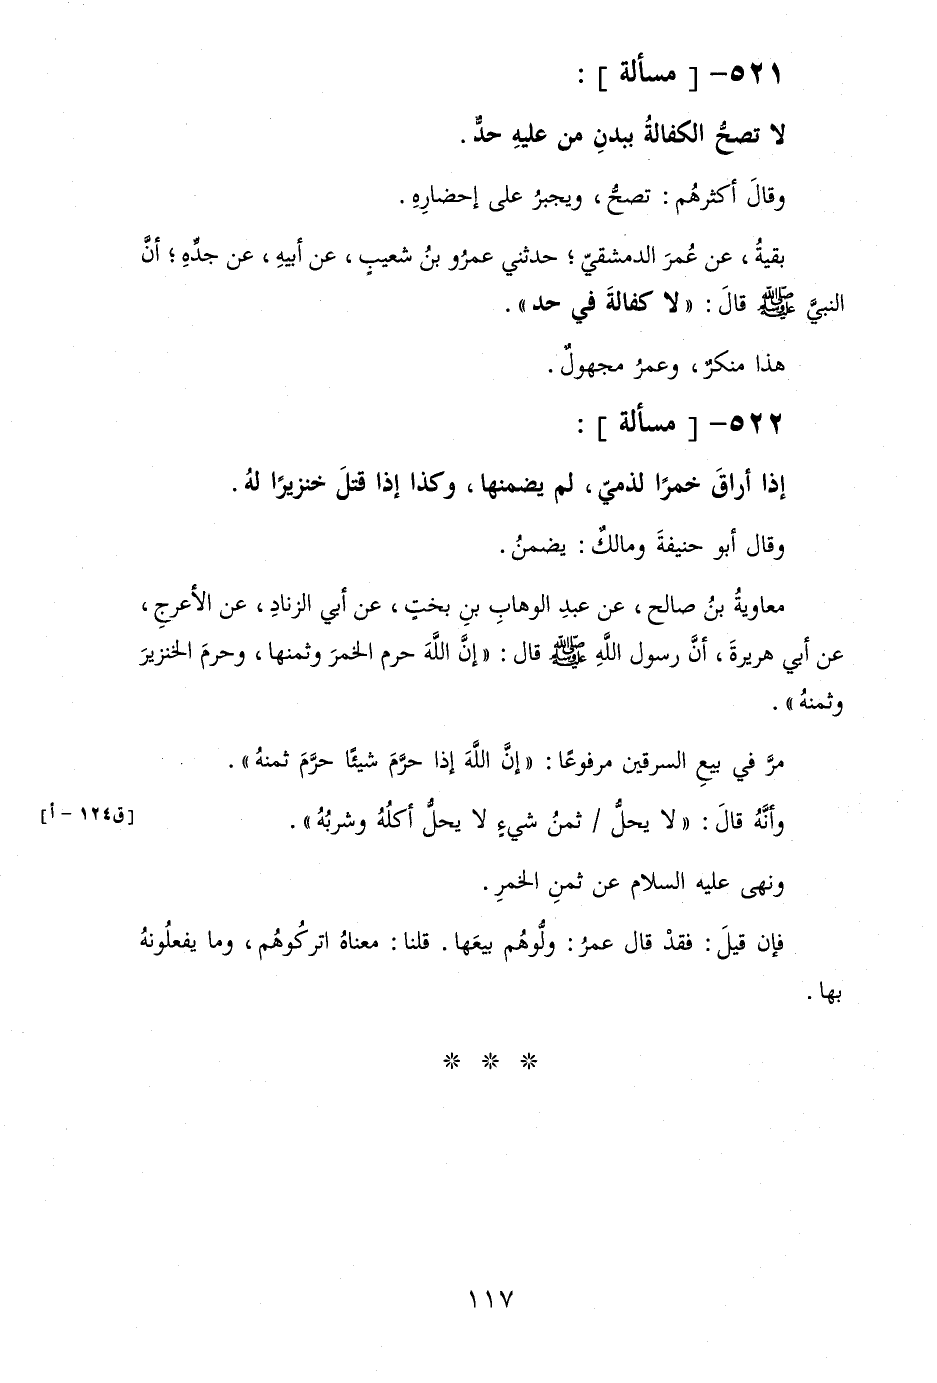 ٥٢١- [ مسألة ] :
لا تصحُّ الكفالةُ ببدنِ من عليهِ حدٌّ .
وقالَ أكثرهُم : تصحُّ ، ويجبرُ على إحضارِهِ .
بقيةُ ، عن عُمرَ الدمشقيّ ؛ حدثني عمرُو بنُ شعيبٍ ، عن أبيهِ ، عن جدِّهِ ؛ أنَّ
النبيَّ ﷺ قالَ : « لا كفالةَ في حد » .
هذا منكرٌ ، وعمرُ مجهولٌ .
٥٢٢- [ مسألة ] :
إذا أراقَ خمرًا لذميّ ، لم يضمنها ، وكذا إذا قتلَ خنزيرًا لهُ .
وقال أبو حنيفةَ ومالكٌ : يضمنُ .
معاويةُ بنُ صالح ، عن عبدِ الوهابِ بنِ بختٍ ، عن أبي الزنادِ ، عن الأعرجِ ،
عن أبي هريرةَ ، أنَّ رسول اللَّهِ ﷺ قال : « إنَّ اللَّهَ حرم الخمرَ وثمنها ، وحرمَ الخنزيرَ
وثمنهُ » .
مرَّ في بيعِ السرقين مرفوعًا : « إنَّ اللَّهَ إذا حرَّمَ شيئًا حرَّمَ ثمنهُ » .
وأنَّهُ قالَ : « لا يحلُّ / ثمنُ شيءٍ لا يحلُّ أكلُهُ وشربُهُ » . [ق١٢٤ - أ]
ونهى عليه السلام عن ثمنِ الخمرِ .
فإن قيلَ : فقدْ قال عمرُ : ولُّوهُم بيعَها . قلنا : معناهُ اتركُوهُم ، وما يفعلُونهُ
بها .
* * *
١١٧